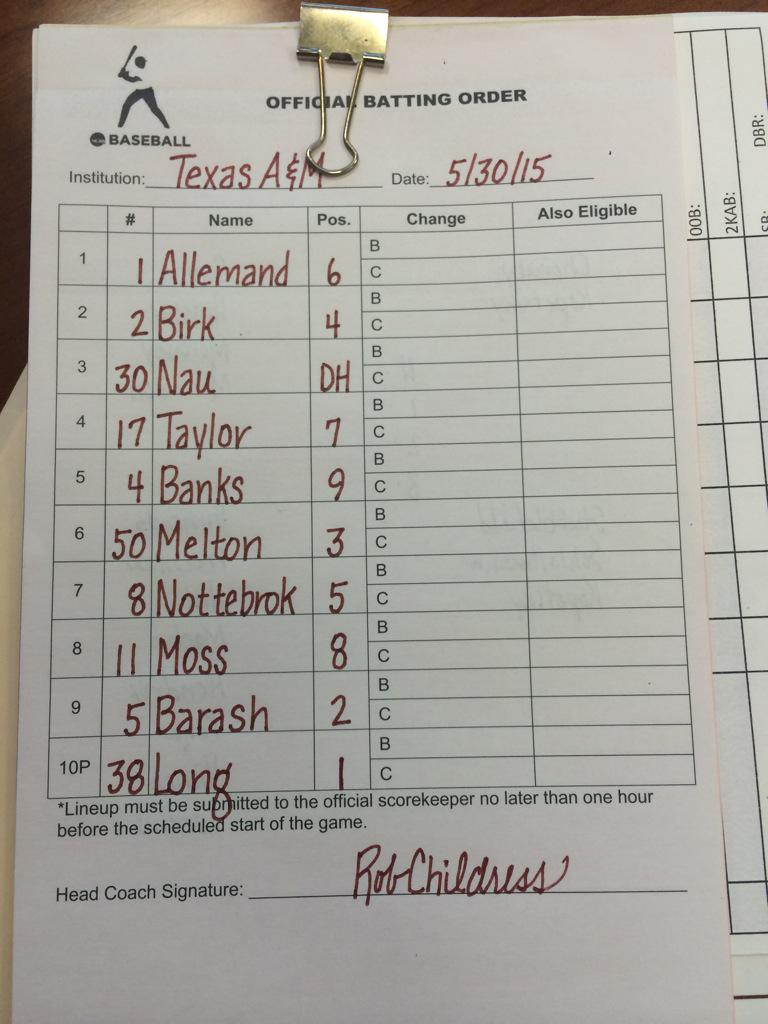 OFFICIAL BATTING ORDER
BASEBALL
Institution: Texas A&M Date: 5/30/15
# Name Pos. Change Also Eligible
1 1 Allemand 6 B C
2 2 Birk 4 B C
3 30 Nau DH B C
4 17 Taylor 7 B C
5 4 Banks 9 B C
6 50 Melton 3 B C
7 8 Nottebrok 5 B C
8 11 Moss 8 B C
9 5 Barash 2 B C
10P 38 Long 1 B C
*Lineup must be submitted to the official scorekeeper no later than one hour
before the scheduled start of the game.
Head Coach Signature: Rob Childress
DBR:
2KAB: